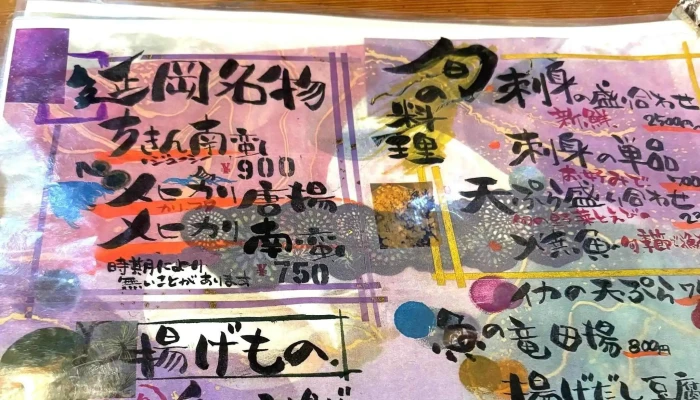 延岡名物
ちきん南蛮
ジューシー
¥900
メヒカリ唐揚
メヒカリ南蛮
時期により
無いことがあります
¥750
揚げもの
旬の料理
刺身の盛り合わせ
新鮮
2500円
刺身の単品
お好みで
天ぷら盛り合わせ
焼魚
イカの天ぷら
魚の竜田揚 800円
揚げだし豆腐